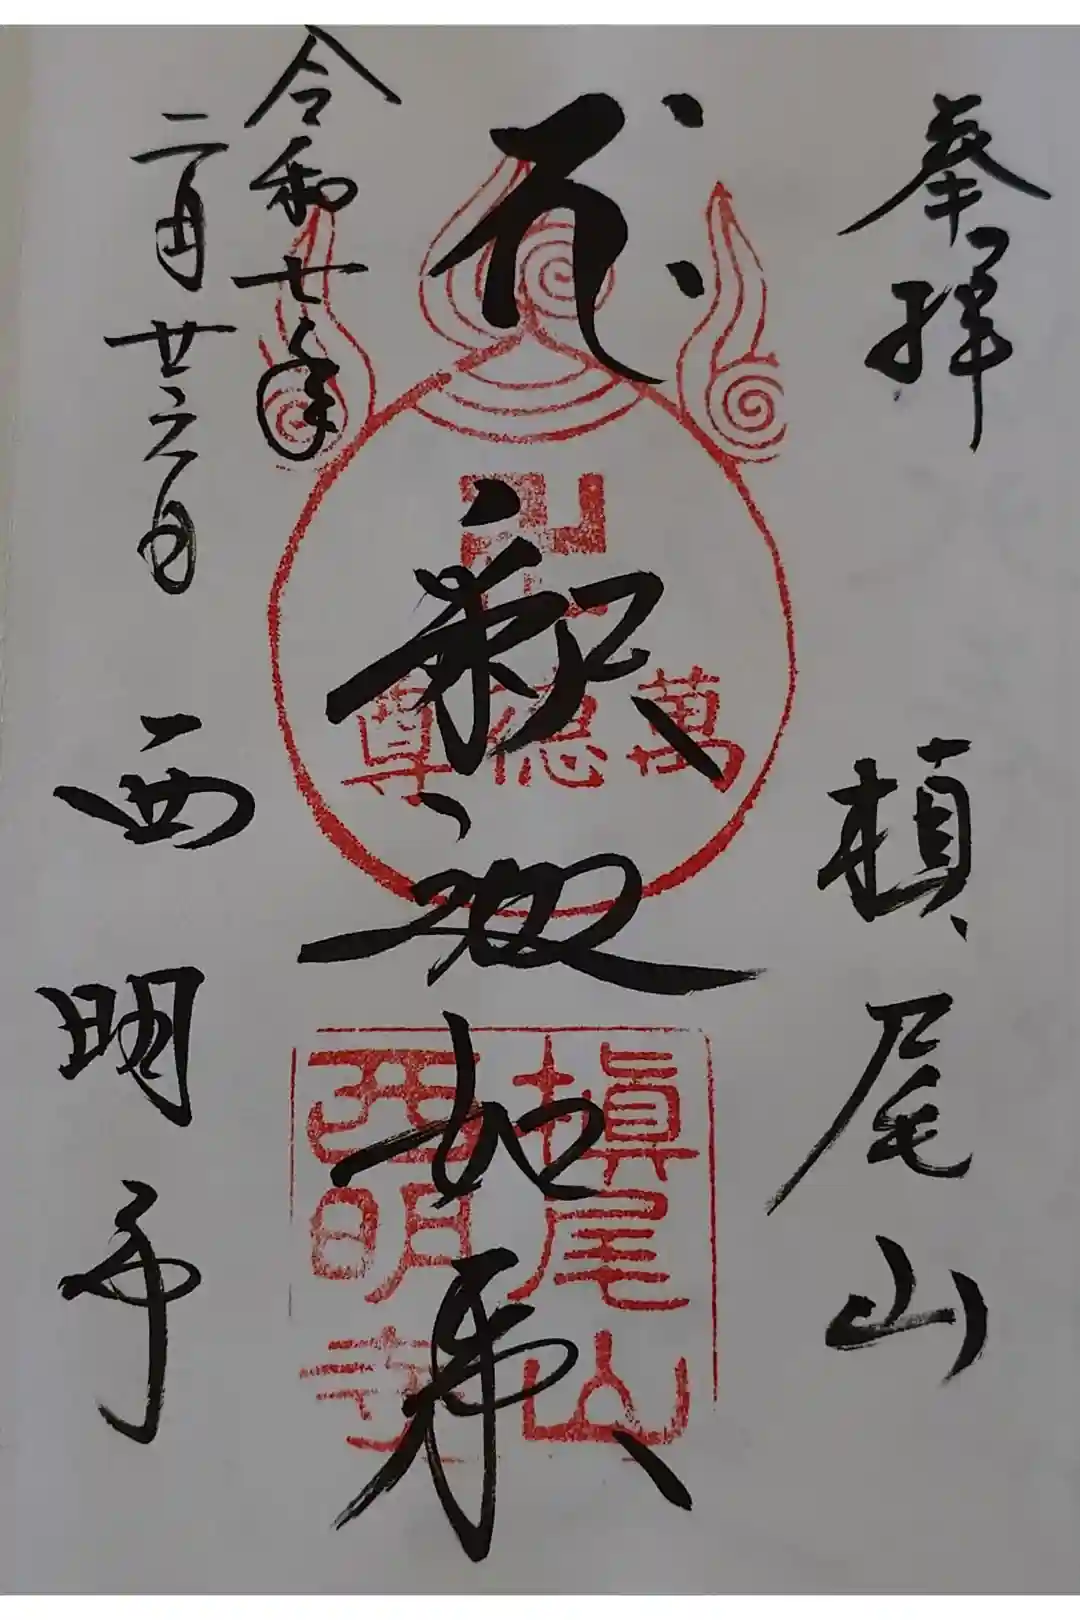 奉拝 槙尾山
釈迦如来
令和七年
二月廿六日
西明寺
卍
萬徳尊
槇尾山
西明寺